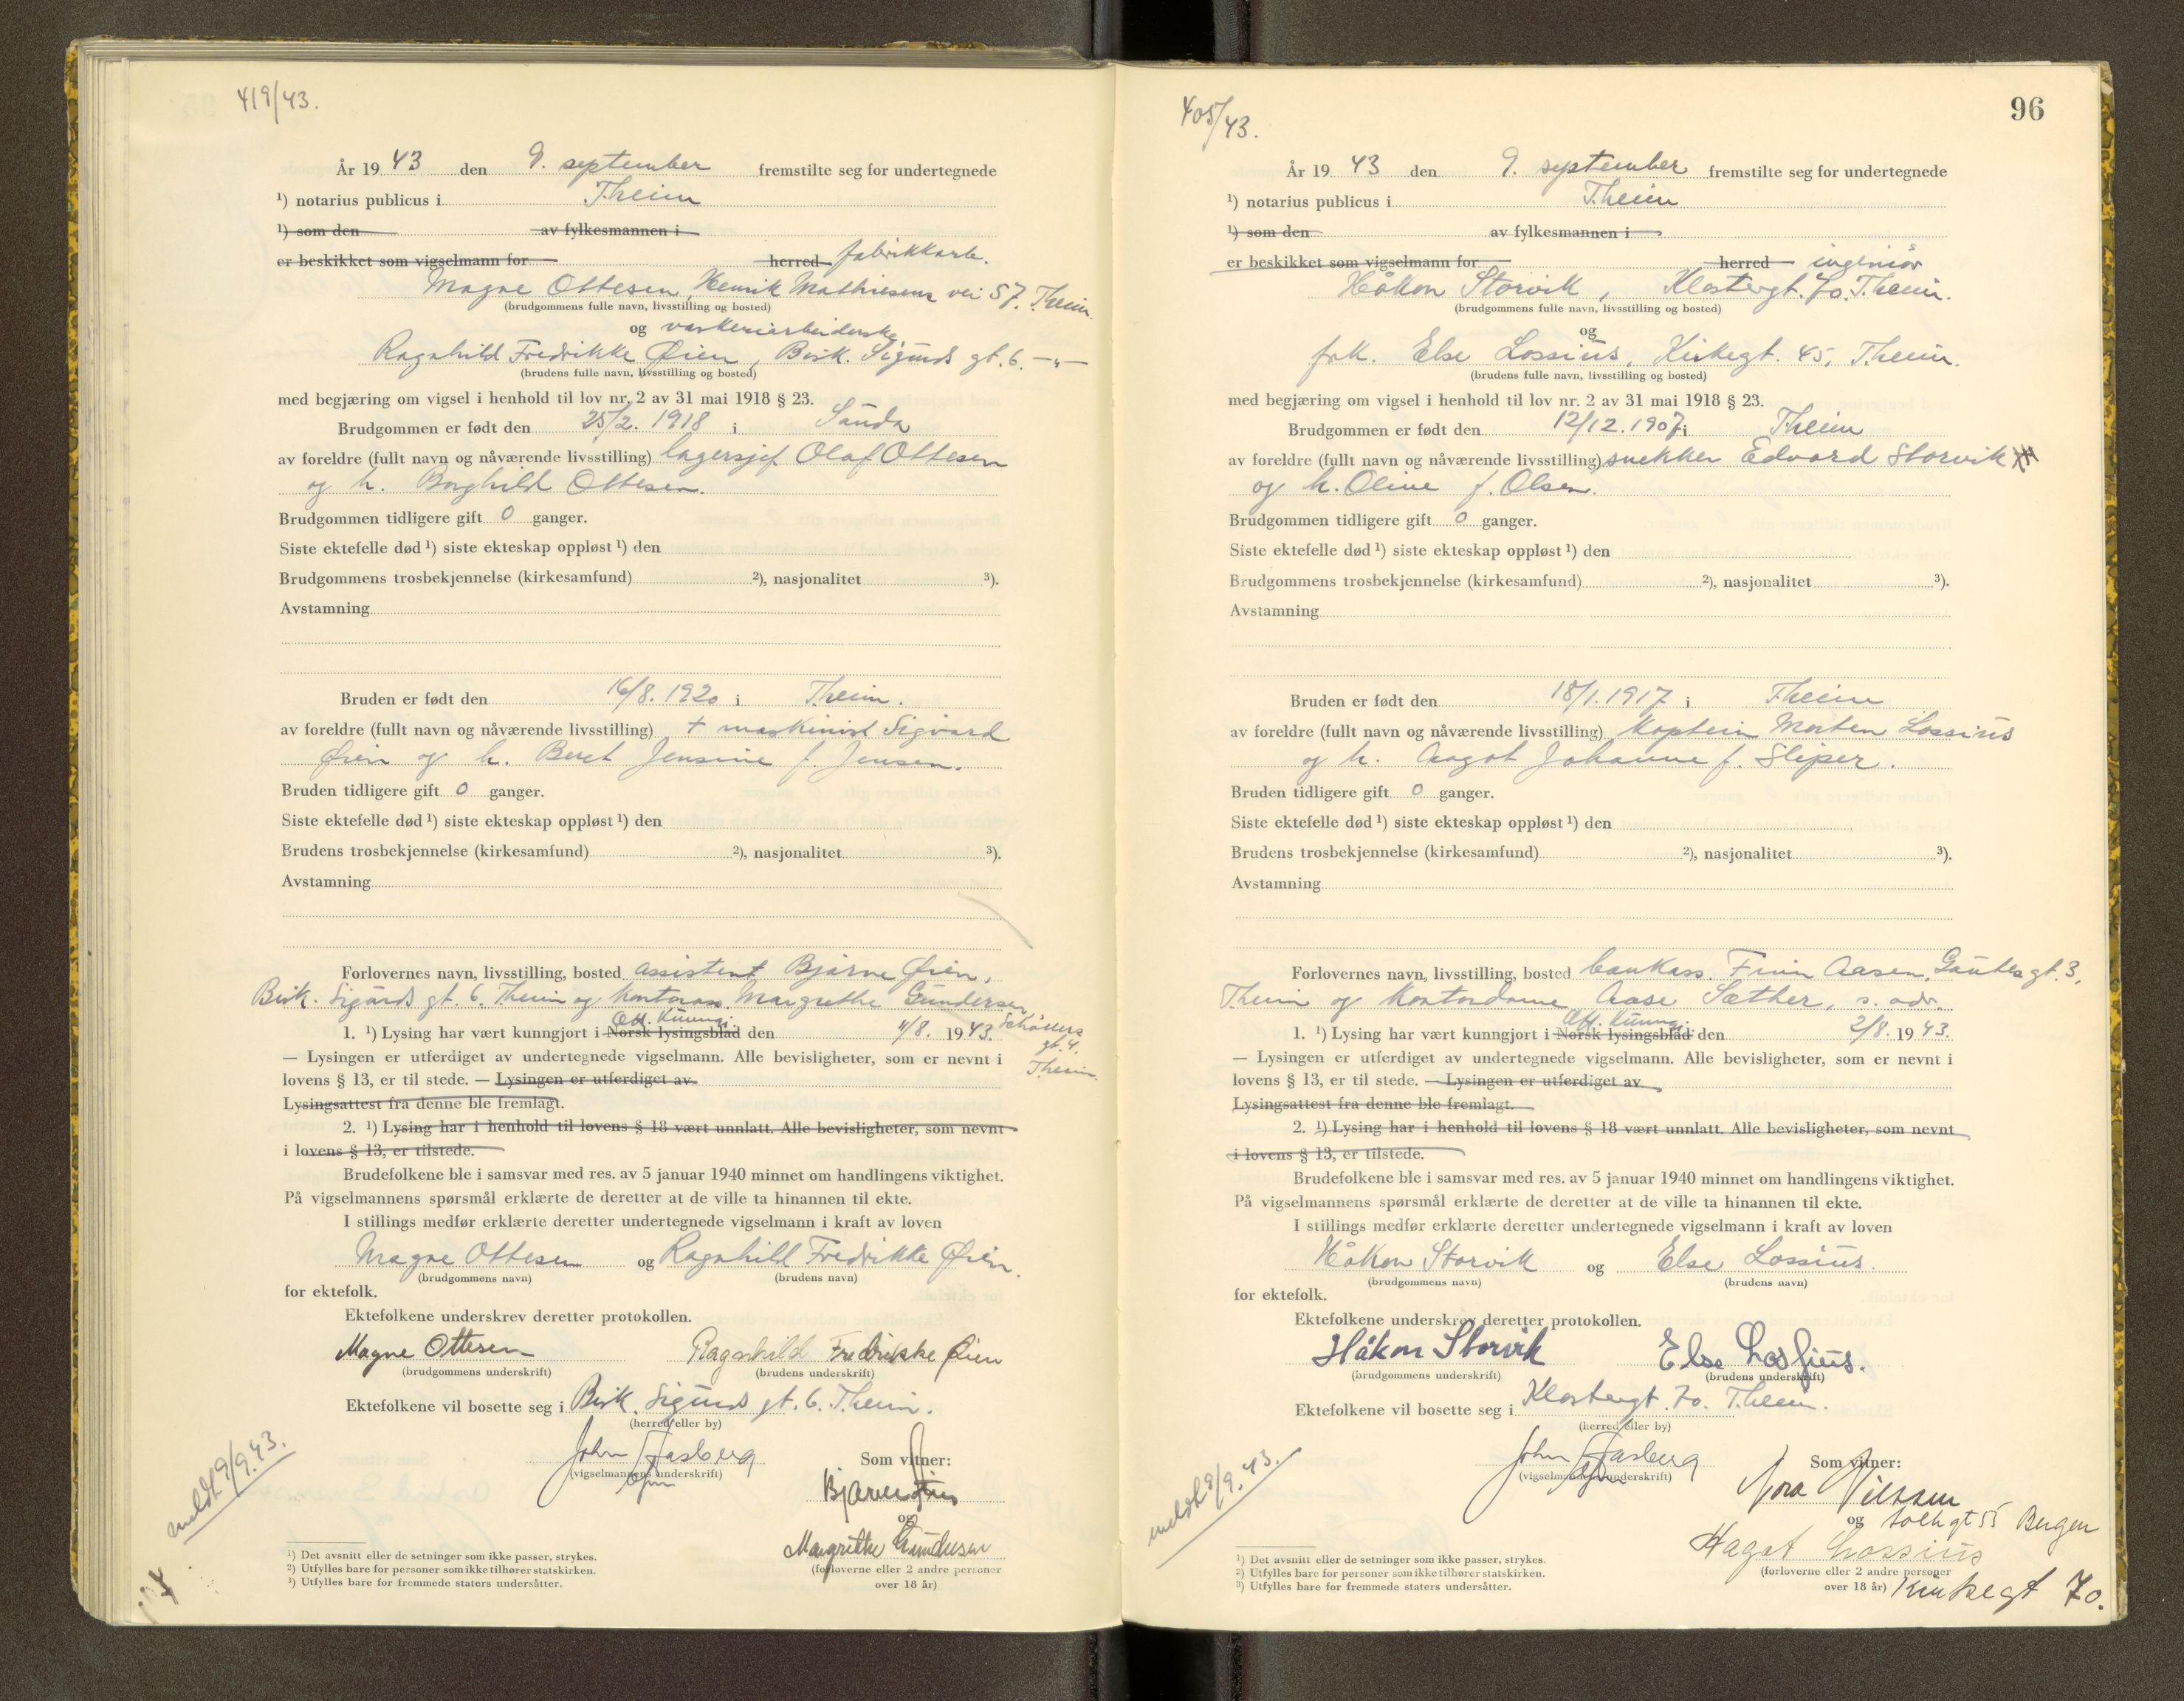 419/43.
År 19 43 den 9. september fremstilte seg for undertegnede
¹) notarius publicus i Theim
¹) som den av fylkesmannen i
er beskikket som vigselmann for herred fabrikkarb.
Magne Ottesen, Henrik Mathiesens vei 57. Theim
(brudgommens fulle navn, livsstilling og bosted)
og vaskeriarbeiderske
Ragnhild Fredrikke Øien, Bisk. Sigurds gt. 6. —„—
(brudens fulle navn, livsstilling og bosted)
med begjæring om vigsel i henhold til lov nr. 2 av 31 mai 1918 § 23.
Brudgommen er født den 25/2. 1918 i Sunda
av foreldre (fullt navn og nåværende livsstilling) lagersjef Olaf Ottesen
og h. Borghild Ottesen.
Brudgommen tidligere gift 0 ganger.
Siste ektefelle død ¹) siste ekteskap oppløst ¹) den
Brudgommens trosbekjennelse (kirkesamfund) ²), nasjonalitet ³).
Avstamning
Bruden er født den 16/8. 1920 i Theim.
av foreldre (fullt navn og nåværende livsstilling) + maskinist Sigvard
Øien og h. Beret Jensine f. Jensen.
Bruden tidligere gift 0 ganger.
Siste ektefelle død ¹) siste ekteskap oppløst ¹) den
Brudens trosbekjennelse (kirkesamfund) ²), nasjonalitet ³).
Avstamning
Forlovernes navn, livsstilling, bosted assistent Bjarne Øien,
Bisk. Sigurds gt. 6. Theim og kontorass. Margrethe Gundersen,
Schøiens
gt. 4.
Theim.
Off. Kunng.
1. ¹) Lysing har vært kunngjort i Norsk lysingsblad den 4/8. 19 43.
— Lysingen er utferdiget av undertegnede vigselmann. Alle bevisligheter, som er nevnt i
lovens § 13, er til stede. — Lysingen er utferdiget av
Lysingsattest fra denne ble fremlagt.
2. ¹) Lysing har i henhold til lovens § 18 vært unnlatt. Alle bevisligheter, som nevnt
i lovens § 13, er tilstede.
Brudefolkene ble i samsvar med res. av 5 januar 1940 minnet om handlingens viktighet.
På vigselmannens spørsmål erklærte de deretter at de ville ta hinannen til ekte.
I stillings medfør erklærte deretter undertegnede vigselmann i kraft av loven
Magne Ottesen og Ragnhild Fredrikke Øien.
(brudgommens navn) (brudens navn)
for ektefolk.
Ektefolkene underskrev deretter protokollen.
Magne Ottesen Ragnhild Fredrikke Øien
(brudgommens underskrift) (brudens underskrift)
Ektefolkene vil bosette seg i Bisk. Sigurds gt. 6. Theim.
(herred eller by)
John Aasberg
(vigselmannens underskrift)
Som vitner:
Bjarne Øien
og
Margrethe Gundersen
(forloverne eller 2 andre personer
over 18 år)
meldt 9/9. 43.
¹) Det avsnitt eller de setninger som ikke passer, strykes.
²) Utfylles bare for personer som ikke tilhører statskirken.
³) Utfylles bare for fremmede staters undersåtter.
405/43.
96
År 19 43 den 9. september fremstilte seg for undertegnede
¹) notarius publicus i Theim
¹) som den av fylkesmannen i
er beskikket som vigselmann for herred ingeniør
Håkon Storvik, Klostergt. 70. Theim.
(brudgommens fulle navn, livsstilling og bosted)
og
frk. Else Lossius, Kirkegt. 45, Theim.
(brudens fulle navn, livsstilling og bosted)
med begjæring om vigsel i henhold til lov nr. 2 av 31 mai 1918 § 23.
Brudgommen er født den 12/12. 1907 i Theim
av foreldre (fullt navn og nåværende livsstilling) snekker Edvard Storvik
og h. Oline f. Olsen.
Brudgommen tidligere gift 0 ganger.
Siste ektefelle død ¹) siste ekteskap oppløst ¹) den
Brudgommens trosbekjennelse (kirkesamfund) ²), nasjonalitet ³).
Avstamning
Bruden er født den 18/1. 1917 i Theim
av foreldre (fullt navn og nåværende livsstilling) kaptein Morten Lossius
og h. Aagot Johanne f. Sliper.
Bruden tidligere gift 0 ganger.
Siste ektefelle død ¹) siste ekteskap oppløst ¹) den
Brudens trosbekjennelse (kirkesamfund) ²), nasjonalitet ³).
Avstamning
Forlovernes navn, livsstilling, bosted bankass. Finn Aasen, Gautes gt. 3,
Theim og kontordame Aase Sæther, s. adr.
Off. Kunng.
1. ¹) Lysing har vært kunngjort i Norsk lysingsblad den 2/8. 19 43.
— Lysingen er utferdiget av undertegnede vigselmann. Alle bevisligheter, som er nevnt i
lovens § 13, er til stede. — Lysingen er utferdiget av
Lysingsattest fra denne ble fremlagt.
2. ¹) Lysing har i henhold til lovens § 18 vært unnlatt. Alle bevisligheter, som nevnt
i lovens § 13, er tilstede.
Brudefolkene ble i samsvar med res. av 5 januar 1940 minnet om handlingens viktighet.
På vigselmannens spørsmål erklærte de deretter at de ville ta hinannen til ekte.
I stillings medfør erklærte deretter undertegnede vigselmann i kraft av loven
Håkon Storvik og Else Lossius.
(brudgommens navn) (brudens navn)
for ektefolk.
Ektefolkene underskrev deretter protokollen.
Håkon Storvik Else Lossius.
(brudgommens underskrift) (brudens underskrift)
Ektefolkene vil bosette seg i Klostergt. 70. Theim.
(herred eller by)
John Aasberg
(vigselmannens underskrift)
Som vitner:
Nora Nilssen
og gt 55 Bergen
Aagot Lossius
(forloverne eller 2 andre personer
over 18 år) Kirkegt 70.
meldt 9/9. 43.
¹) Det avsnitt eller de setninger som ikke passer, strykes.
²) Utfylles bare for personer som ikke tilhører statskirken.
³) Utfylles bare for fremmede staters undersåtter.